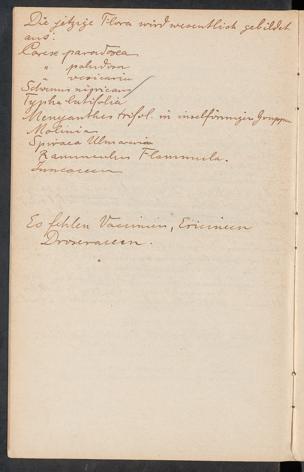 Die jetzige Flora wird wesentlich gebildet
aus:
Carex paradoxa
" paludosa
" vesicaria
Schoenus nigricans
Typha latifolia
Menyanthes trifol. in inselförmigen Gruppen
Molinia
Spiraea Ulmaria
Ranunculus Flammula.
Juncaceen
Es fehlen Vaccinien, Ericineen
Droseraceen.